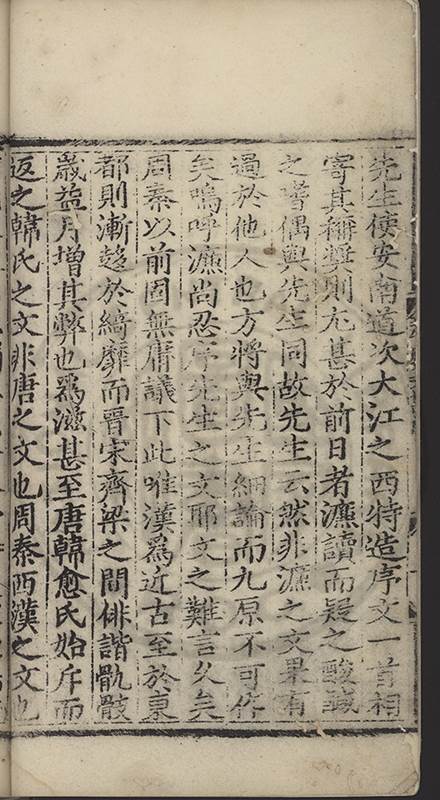 先生使安南道次大江之西特造序文一首相
寄其稱奬則尤甚於前日者濂讀而疑之酸醎
之嗜偶與先生同故先生云然非濂之文果有
過於他人也方將與先生細論而九原不可作
矣嗚呼濂尚忍序先生之文耶文之難言久矣
周秦以前固無庸議下此唯漢爲近古至於東
都則漸趍於綺靡而晉宋齊梁之間俳諧骫骳
歲益月增其弊也爲滋甚至唐韓愈氏始斥而
返之韓氏之文非唐之文也周秦西漢之文也